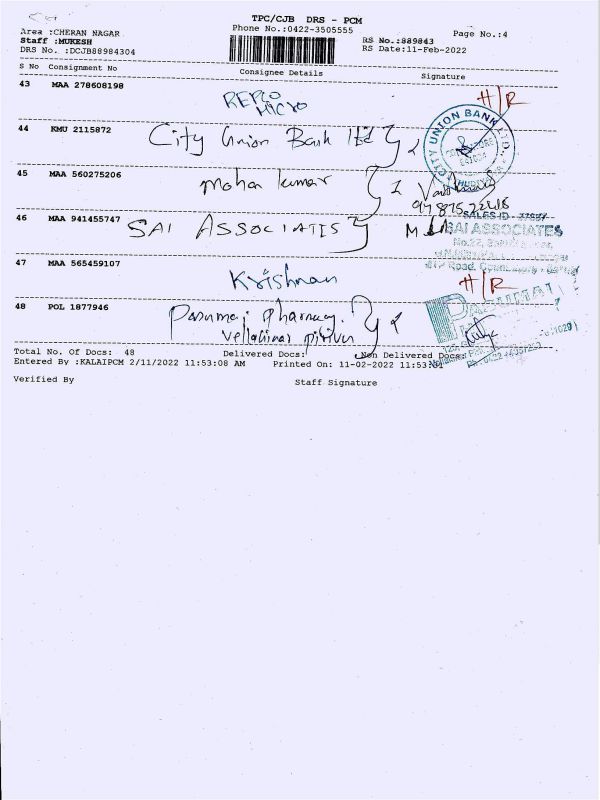 TPC/CJB DRS - PCM
Area :CHERAN NAGAR
Phone No.:0422-3505555
Page No.:4
Staff :MUKESH
RS No.:889843
DRS No. :DCJB88984304
RS Date:11-Feb-2022
S No Consignment No Consignee Details Signature
43 MAA 278608198 REPCO MICRO H/R
44 KMU 2115872 City Union Bank ltd
CITY UNION BANK LTD.
45 MAA 560275206 Mohan kumar
46 MAA 941455747 SAI ASSOCIATES
SALES ID
SAI ASSOCIATES
Road,
47 MAA 565459107 Krishnan H/R
48 POL 1877946 pharmacy.
Total No. Of Docs: 48 Delivered Docs: Non Delivered Docs:
Entered By :KALAIPCM 2/11/2022 11:53:08 AM Printed On: 11-02-2022 11:53:
Verified By Staff Signature